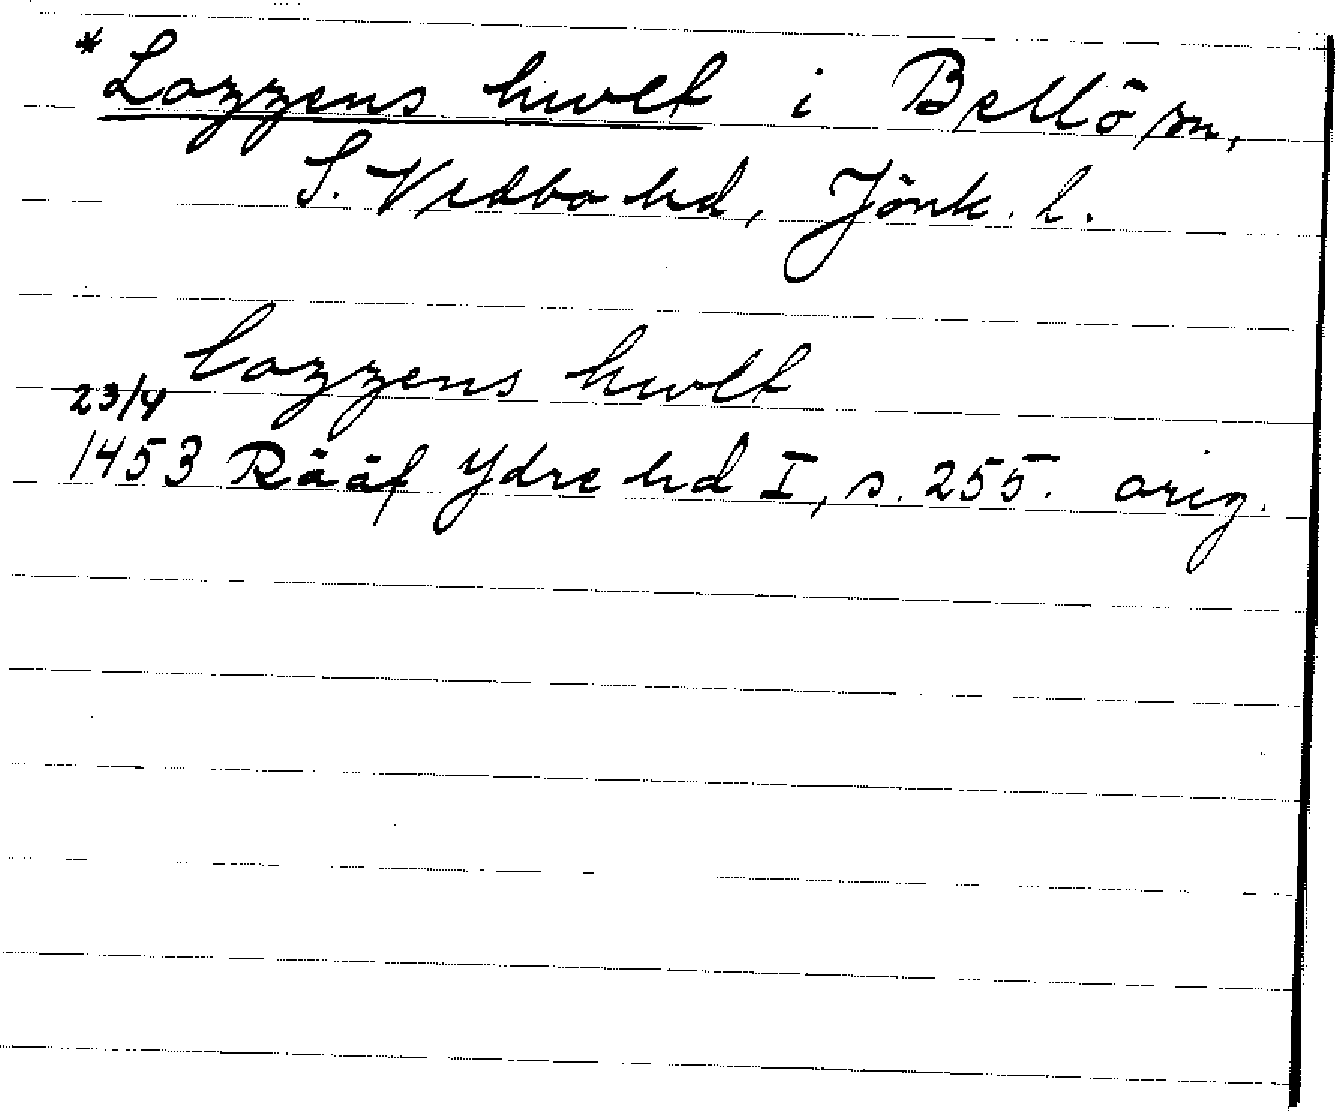 *Lazzens hwlt i Bellö sn,
S. Vedbo hd, Jönk. l.
lazzens hwlt
23/4
1453 Rääf Ydre hd I, s. 255. orig.